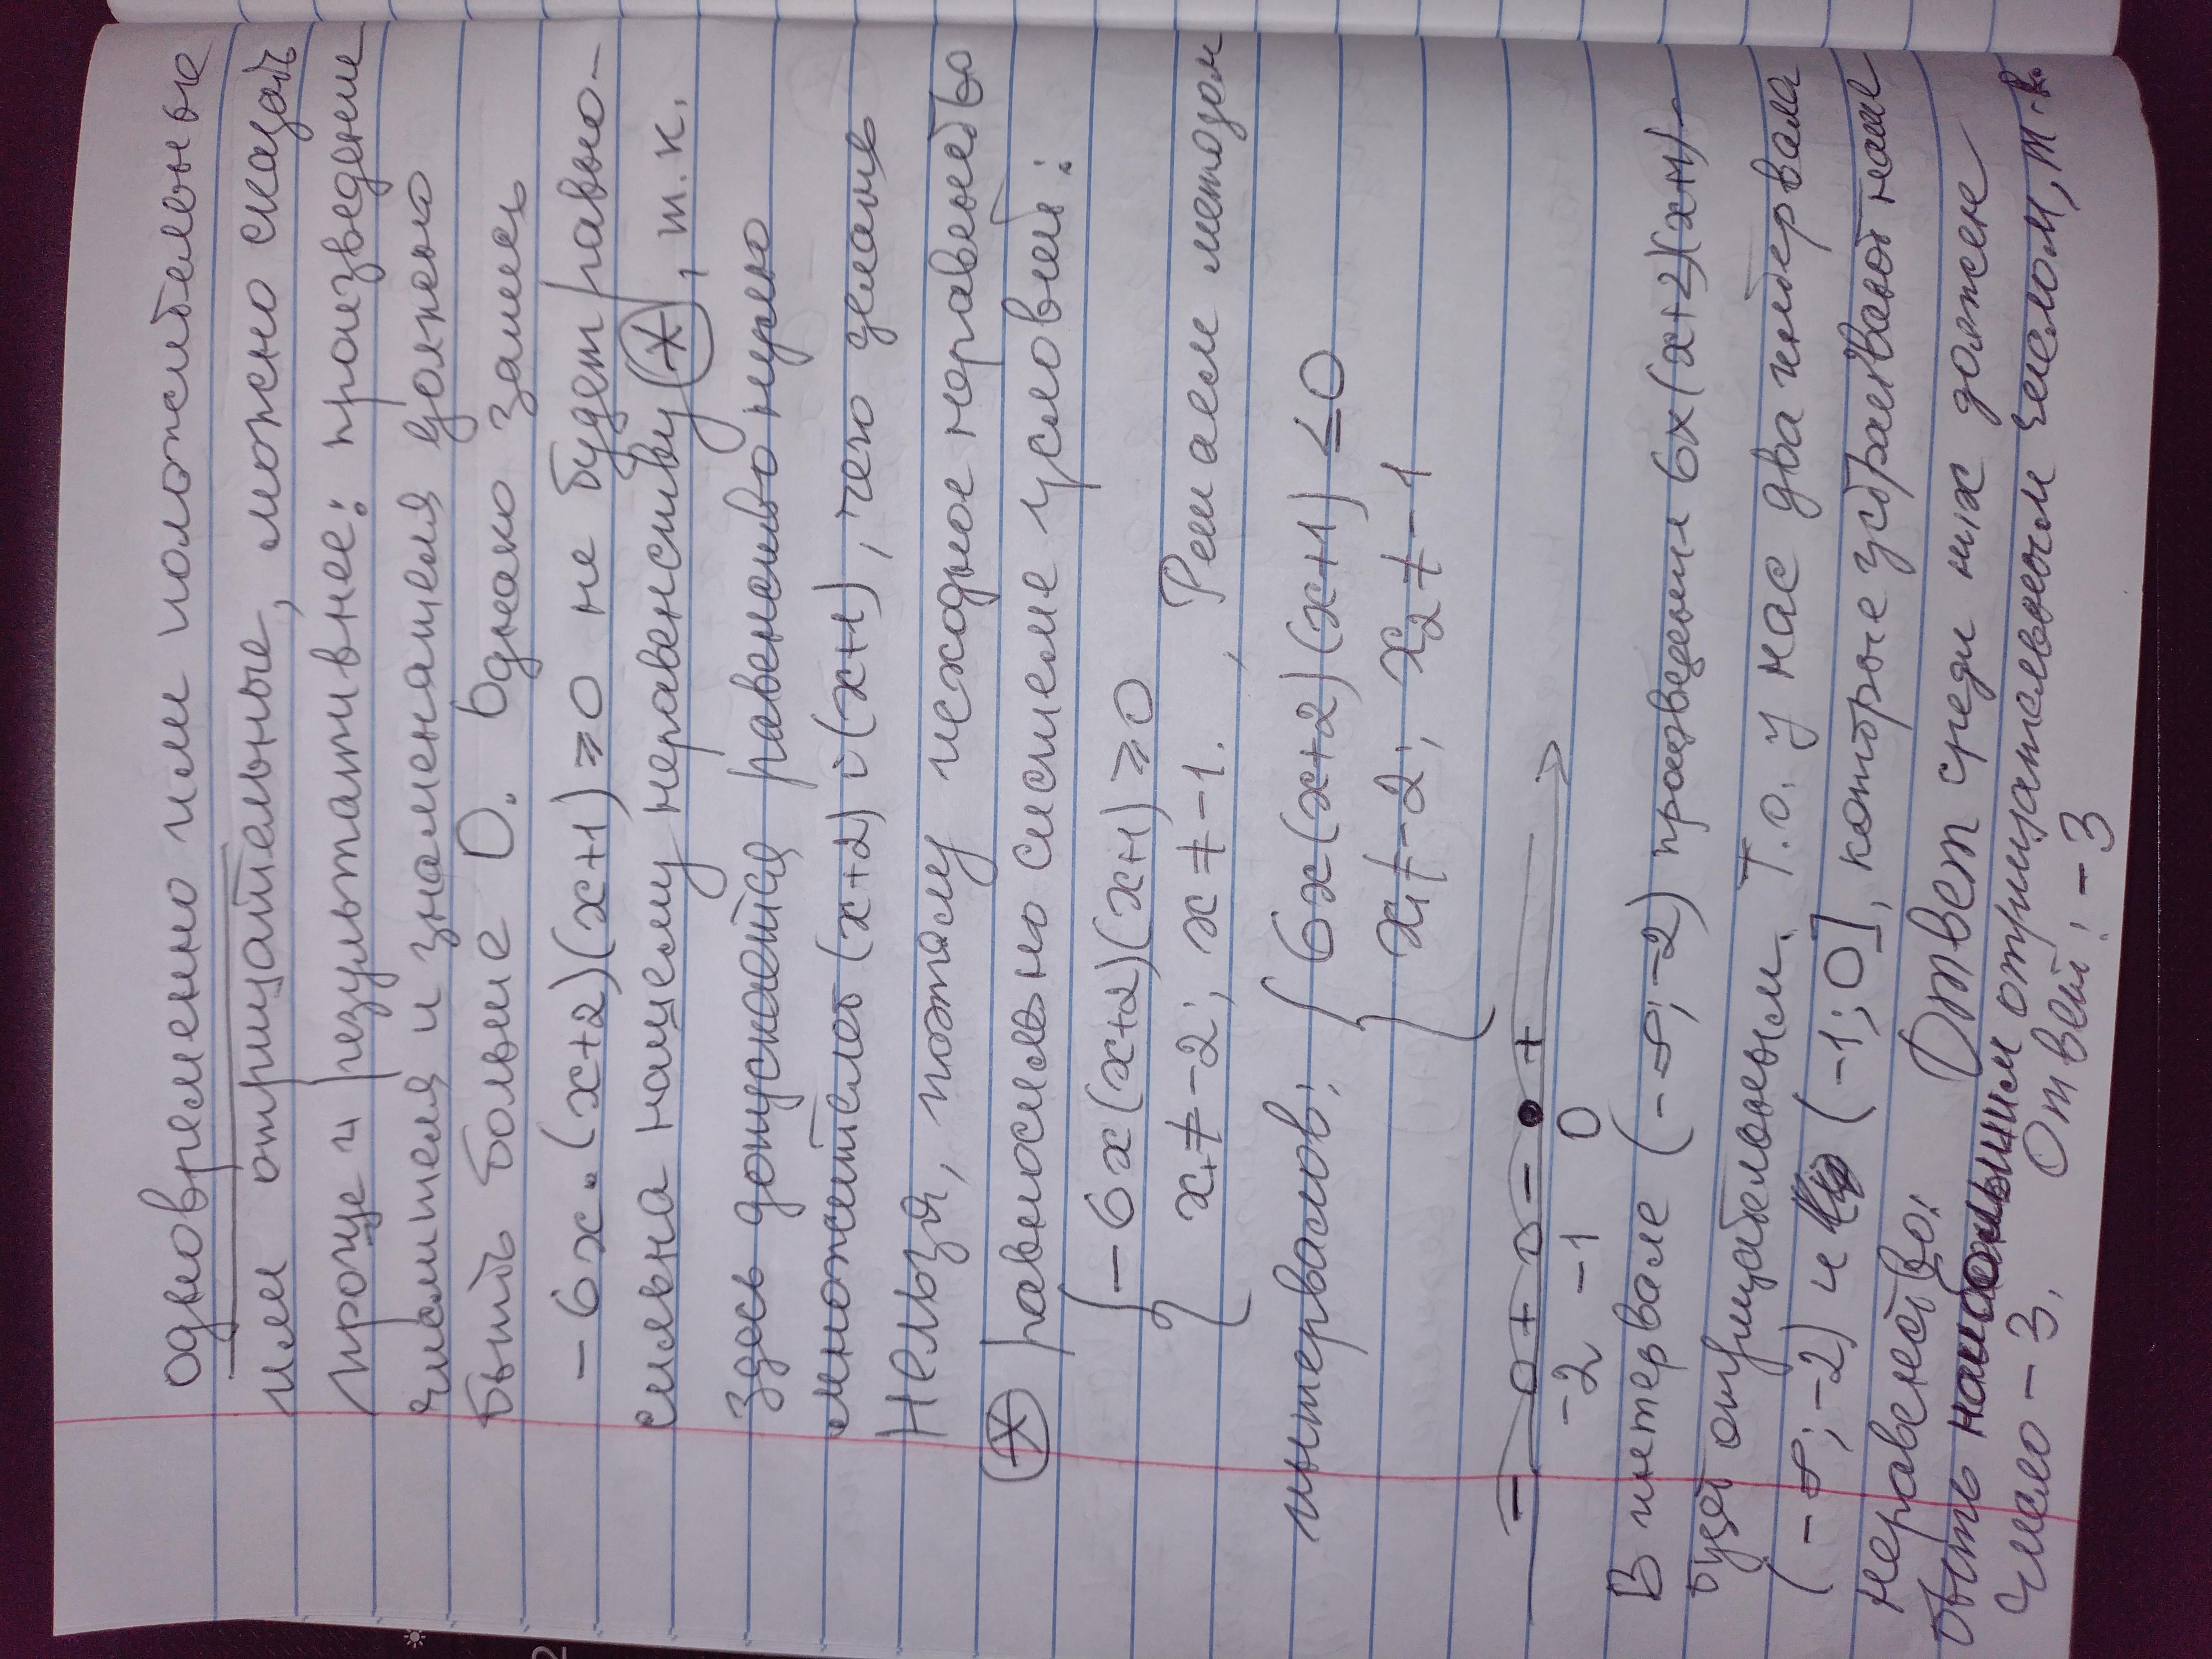 одновременно или положительные
или отрицательные, можно сказать
проще и результативнее: произведение
числителя и знаменателя должно
быть больше 0. Однако запись
-6x·(x+2)(x+1)⩾0 не будет равно-
сильна нашему неравенству (*), т.к.
здесь допускается равенство нулю
множителей (x+2) и (x+1), чего делать
нельзя, поэтому исходное неравенство
(*) равносильно системе условий:
{ -6x(x+2)(x+1)⩾0
x≠-2; x≠-1. Решаем методом
интервалов: { 6x(x+2)(x+1)≤0
x₁≠-2; x₂≠-1
- + - +
-2 -1 0
В интервале (-∞;-2) произведение 6x(x+2)(x+1)-
будет отрицательным. Т.о. у нас два интервала
(-∞;-2) и (-1;0], которые устраивают наше
неравенство. Ответ среди них должен
быть наибольшим отрицательным целом, т.е.
число -3. Ответ: -3
2